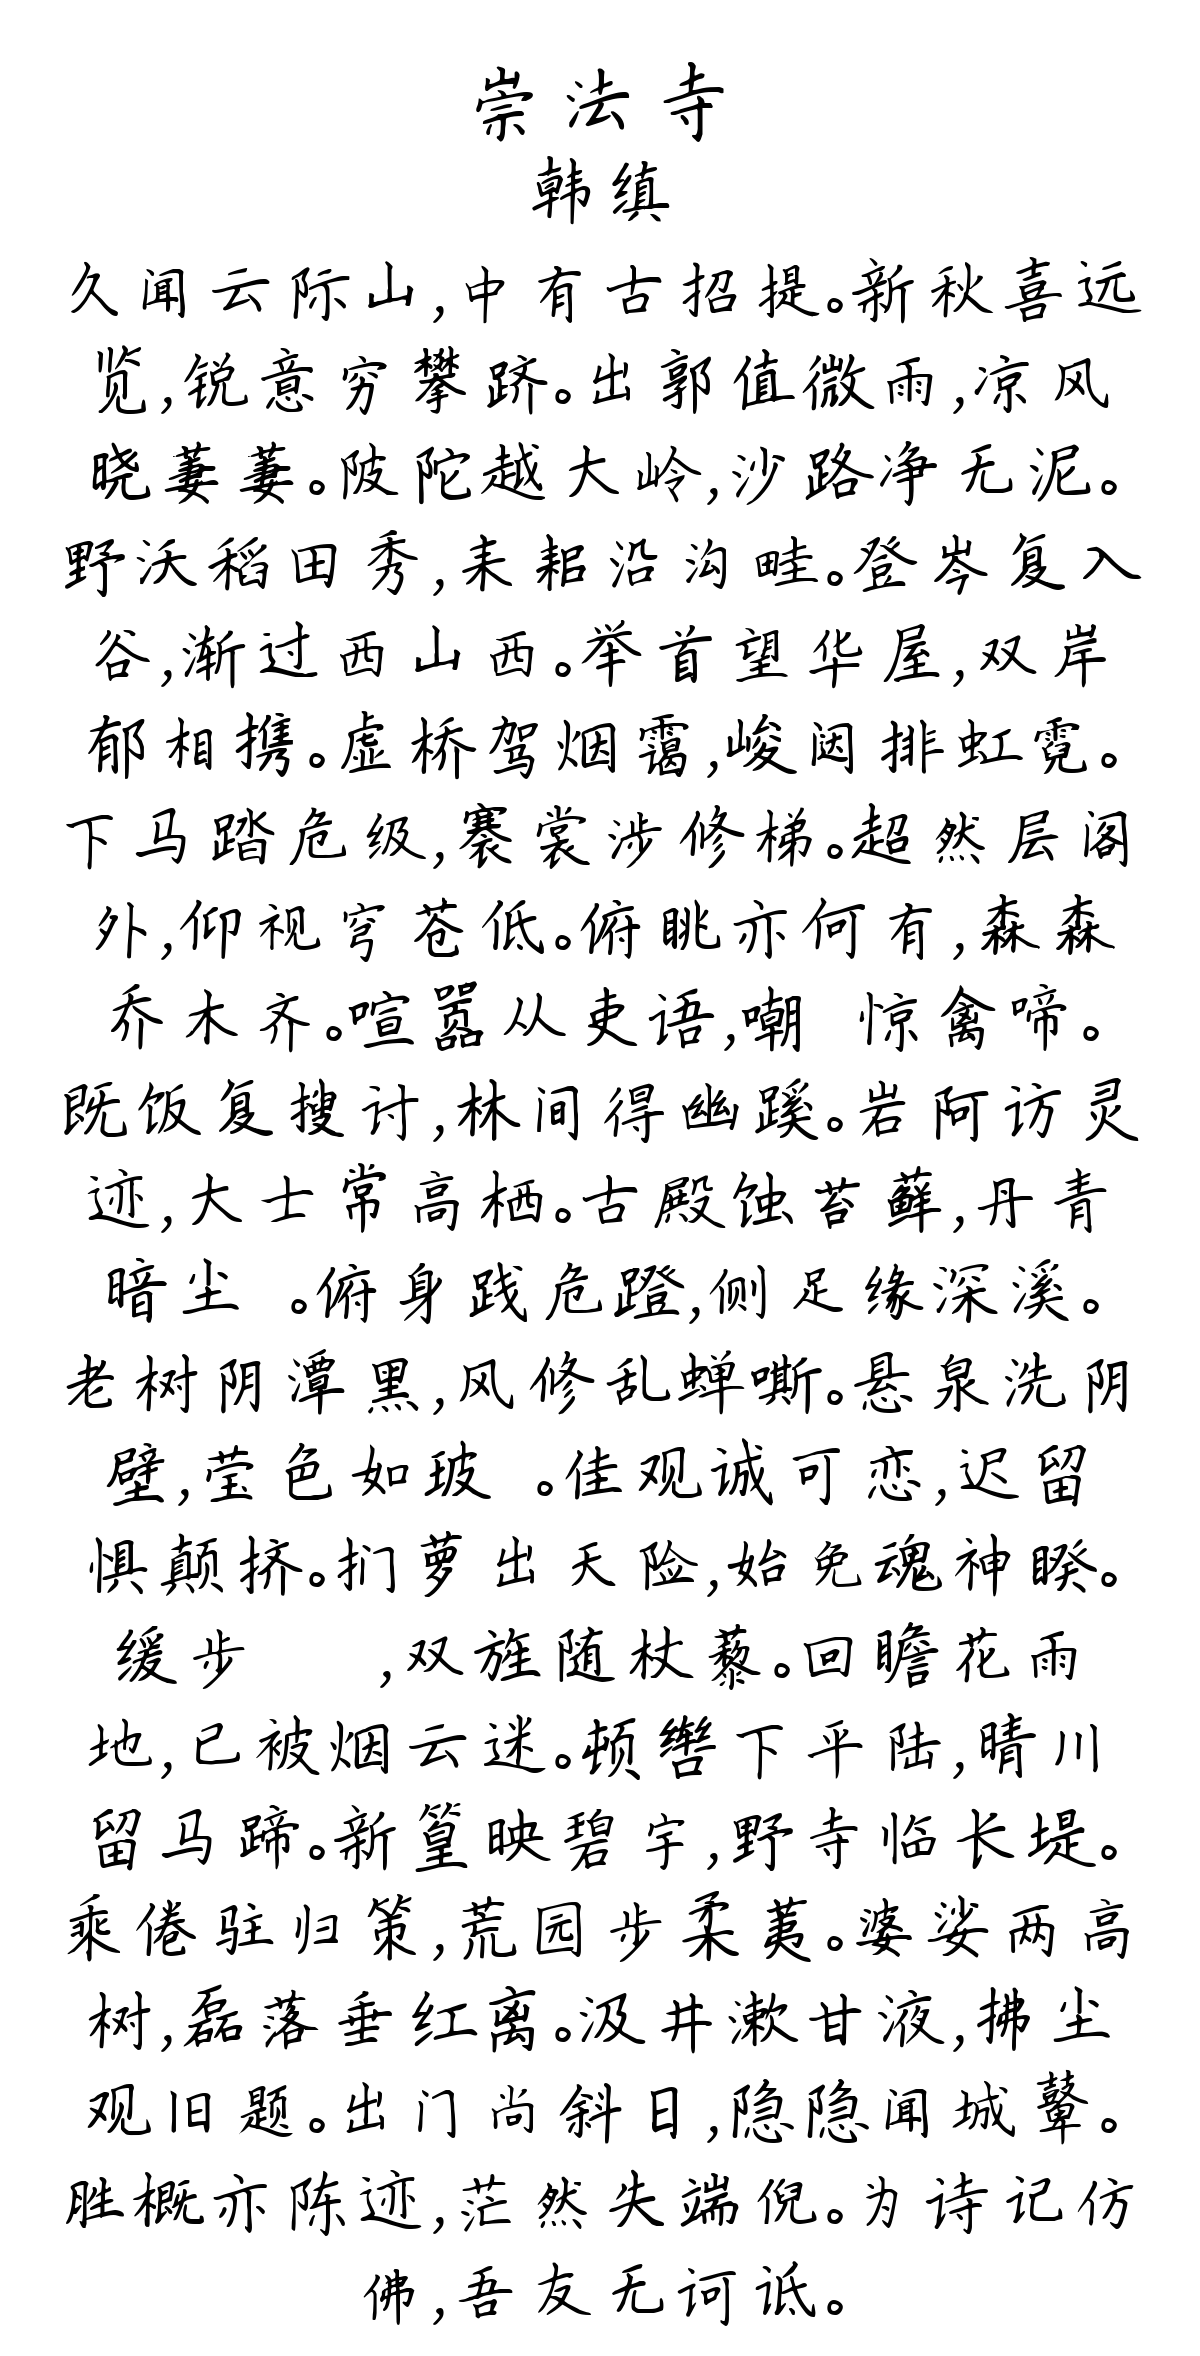 崇法寺
韩缜
久闻云际山,中有古招提。新秋喜远
览,锐意穷攀跻。出郭值微雨,凉风
晓萋萋。陂陀越大岭,沙路净无泥。
野沃稻田秀,耒耜沿沟畦。登岑复入
谷,渐过西山西。举首望华屋,双岸
郁相携。虚桥驾烟霭,峻闼排虹霓。
下马踏危级,褰裳涉修梯。超然层阁
外,仰视穹苍低。俯眺亦何有,森森
乔木齐。喧嚣从吏语,嘲 惊禽啼。
既饭复搜讨,林间得幽蹊。岩阿访灵
迹,大士常高栖。古殿蚀苔藓,丹青
暗尘 。俯身践危蹬,侧足缘深溪。
老树阴潭黑,风修乱蝉嘶。悬泉洗阴
壁,莹色如玻 。佳观诚可恋,迟留
惧颠挤。扪萝出天险,始免魂神睽。
缓步 ,双旌随杖藜。回瞻花雨
地,已被烟云迷。顿辔下平陆,晴川
留马蹄。新篁映碧宇,野寺临长堤。
乘倦驻归策,荒园步柔荑。婆娑两高
树,磊落垂红离。汲井漱甘液,拂尘
观旧题。出门尚斜日,隐隐闻城鼙。
胜概亦陈迹,茫然失端倪。为诗记仿
佛,吾友无诃诋。